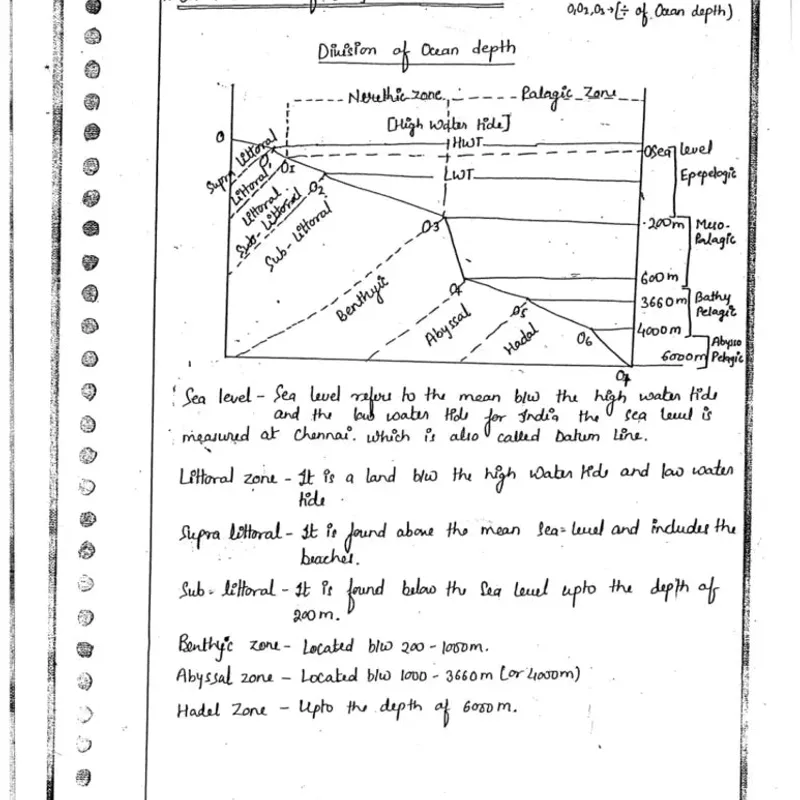 O,O2,O3→[÷ of Ocean depth)
Division of Ocean depth
Nerethic zone
Palagic Zone
[High Water tide]
HWT
LWT
O
O1
O2
O3
O5
O6
O7
Supra littoral
Littoral
Littoral
Sub-Littoral
Sub-Littoral
Benthyic
Abyssal
Hadal
0sea level
Epepelogic
200m
Meso-
Palagic
600m
3660m
Bathy
Pelagic
4000m
Abysso
6000m Pelagic
Sea level - Sea level refers to the mean b/w the high water tide
and the low water tide for India the sea level is
measured at Chennai. which is also called Datum line.
Littoral zone - It is a land b/w the high water tide and low water
tide.
Supra littoral - It is found above the mean sea-level and includes the
beaches.
Sub-littoral - It is found below the sea level upto the depth of
200m.
Benthyic zone - Located b/w 200 - 1000m.
Abyssal zone - Located b/w 1000 - 3660m (or 4000m)
Hadel Zone - Upto the depth of 6000m.